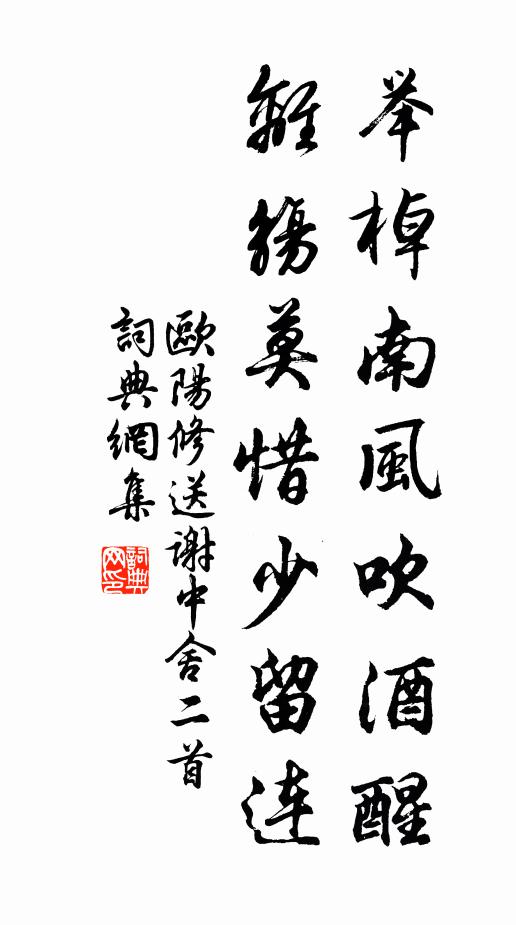 举棹南風吹酒醒
離觴莫惜少留連
歐陽修送谢中舍二首
詞典網集
詞典网印